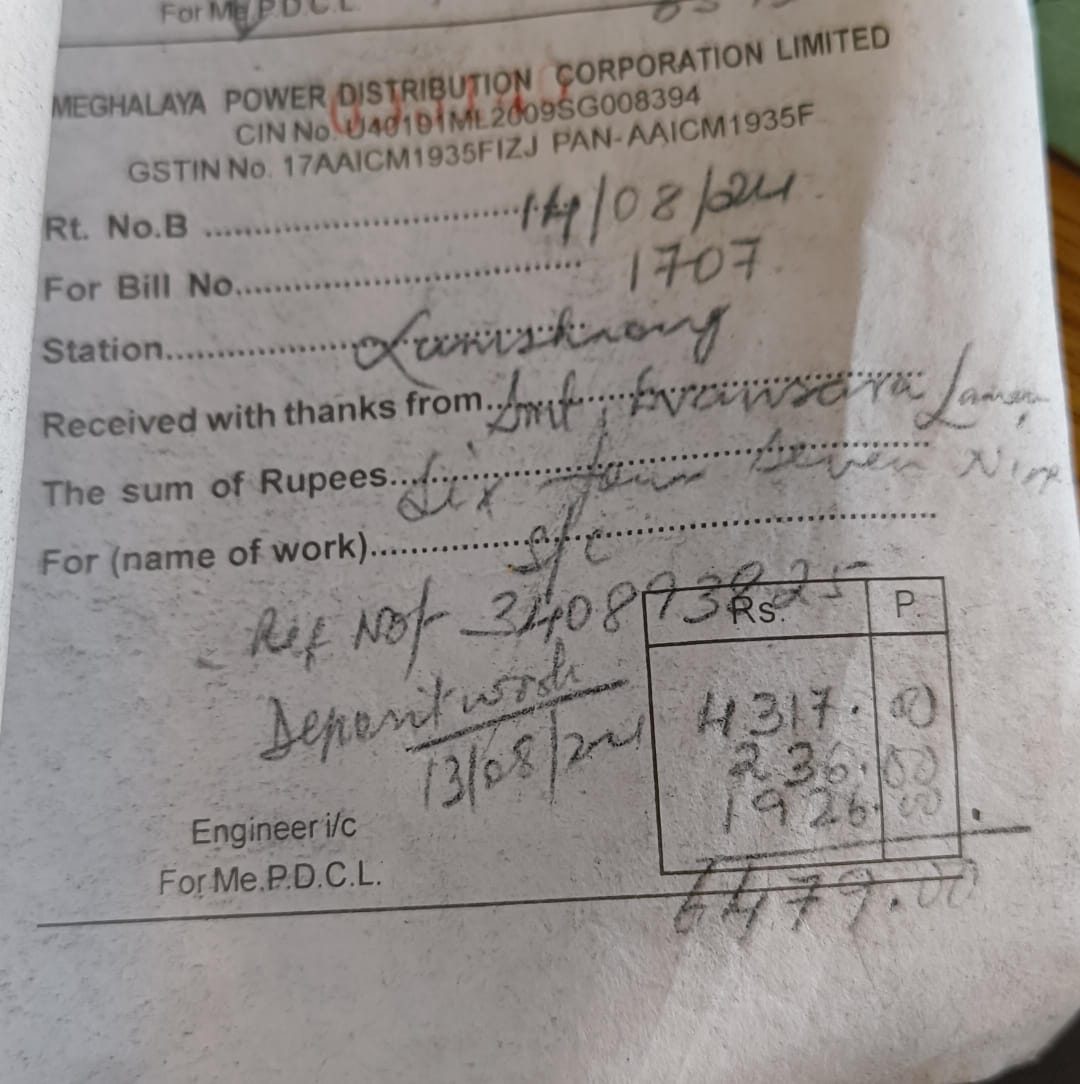 For Me.P.D.C.L.
MEGHALAYA POWER DISTRIBUTION CORPORATION LIMITED
CIN No. U40101ML2009SG008394
GSTIN No. 17AAICM1935FIZJ PAN-AAICM1935F
Rt. No.B .............................. 14/08/24
For Bill No.................................. 1707
Station.................................. Lumshnong
Received with thanks from.................................. Smt,
The sum of Rupees.................................. Six four seven Nine
For (name of work).................................. S/C
Ref No 340893825
Rs. P.
Deposit work
4317.00
13/08/24
236.00
1926.00
Engineer i/c
For Me.P.D.C.L.
6479.00